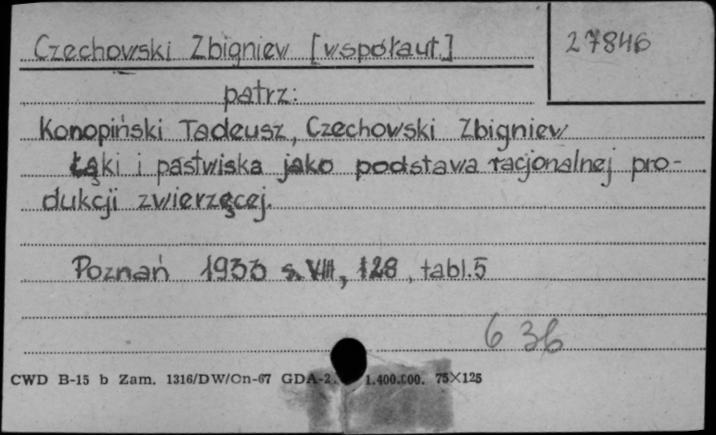 Czechowski Zbigniew [współaut.]
27846
patrz:
Konopiński Tadeusz, Czechowski Zbigniew
Łąki i pastwiska jako podstawa racjonalnej pro-
dukcji zwierzęcej.
Poznań 1933 s. VIII, 128, tabl. 5
636
CWD B-15 b Zam. 1316/DW/On-67 GDA-2. 1.400.000. 75×125